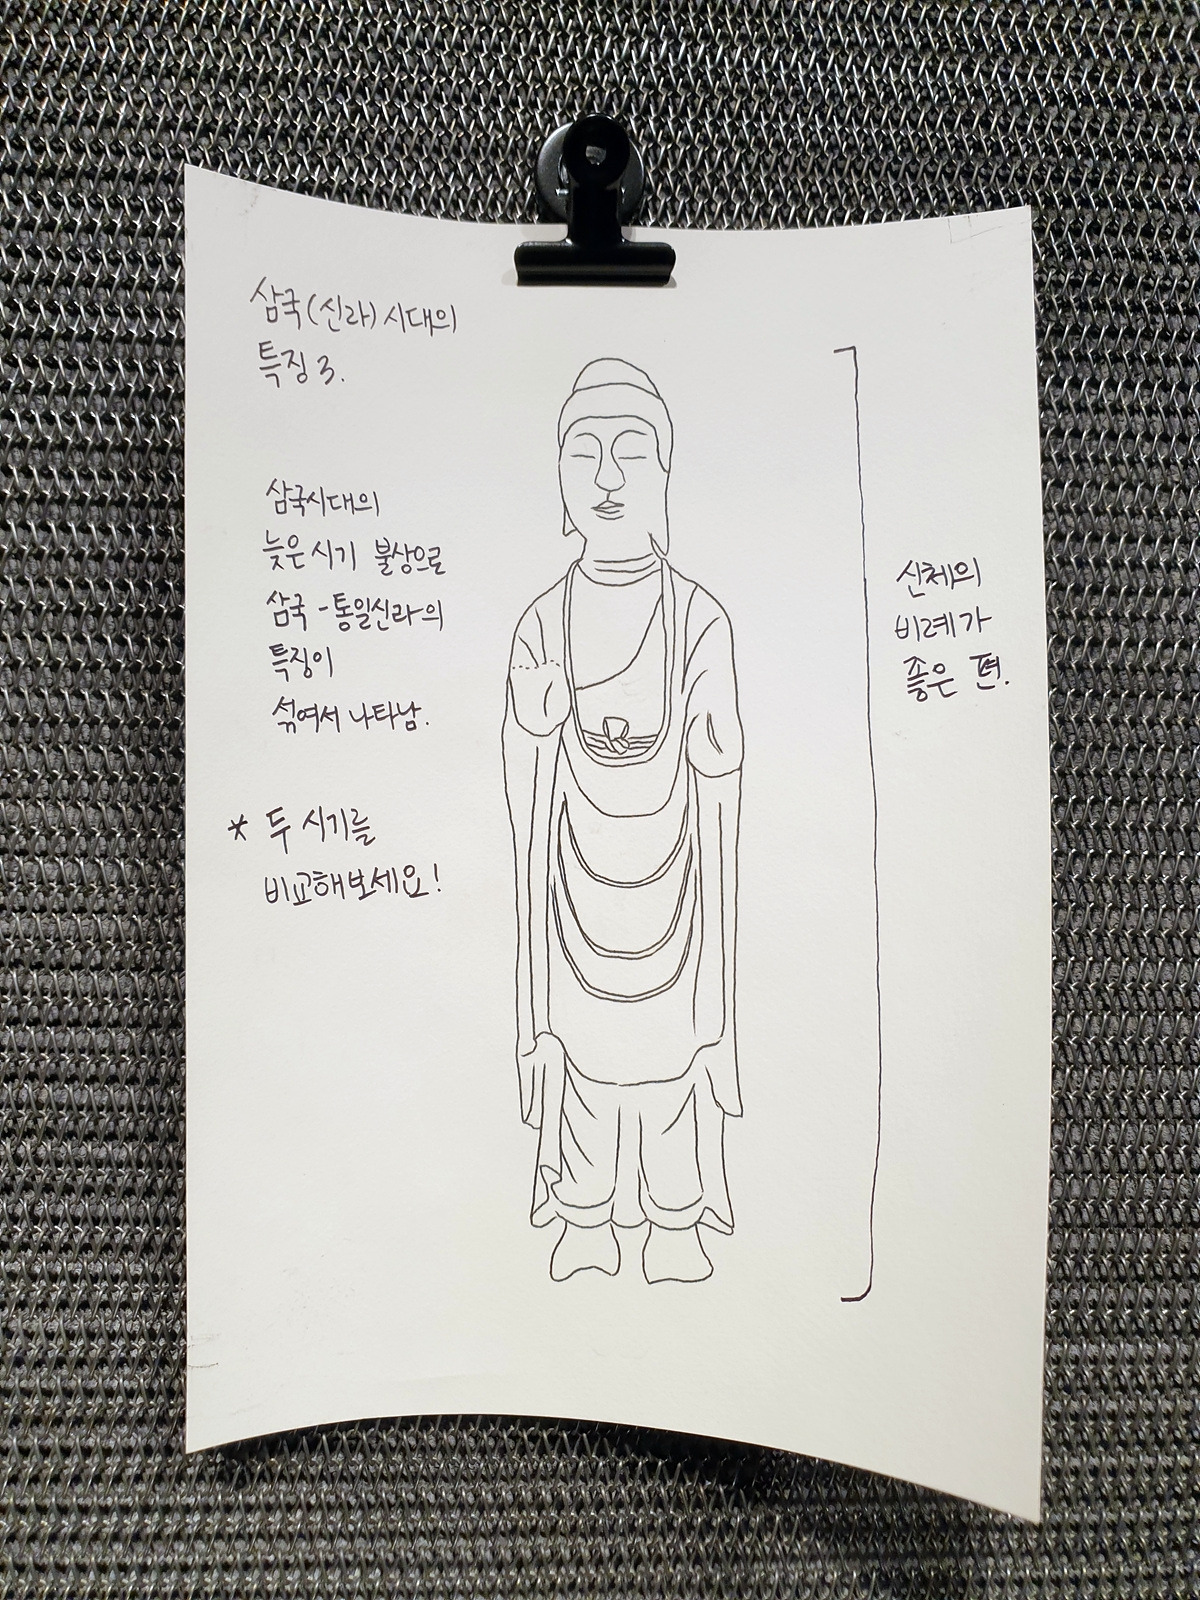 삼국(신라)시대의
특징 3.
삼국시대의
늦은 시기 불상으로
삼국-통일신라의
특징이
섞여서 나타남.
* 두 시기를
비교해보세요!
신체의
비례가
좋은 편.